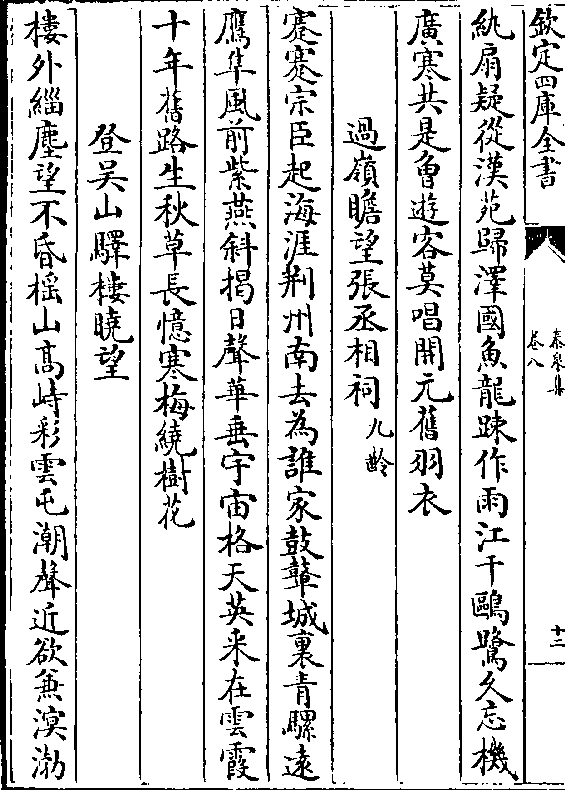 欽定四庫全書
泰泉集
卷八
十三
紈扇疑從漢苑歸澤國魚龍疎作雨江干鷗鷺久忘機
廣寒共是曾遊客莫唱開元舊羽衣
過嶺瞻望張丞相祠九齡
蹇蹇宗臣起海涯荆州南去為誰家鼓鼙城裏青騾遠
鷹隼風前紫燕斜揭日聲華垂宇宙格天英采在雲霞
十年舊路生秋草長憶寒梅繞樹花
登吴山驛樓曉望
樓外緇塵望不昏榣山高峙彩雲屯潮聲近欲兼溟渤